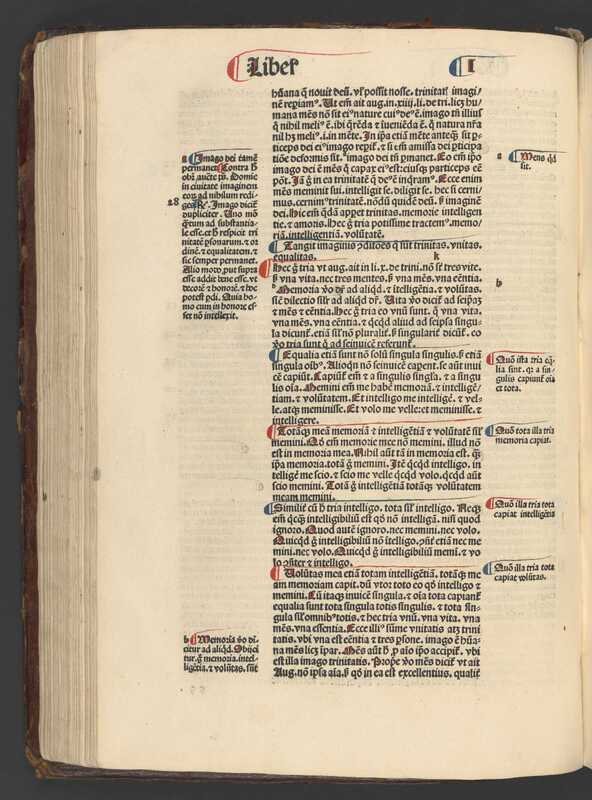 Liber
I
hūana q̄ nouit deū. vel possit nosse. trinitatꝭ imagi/
nem
mana mēs nō sit eiꝰ nature cuiꝰ deꝰ ē. imago tn̄ illiꝰ
q̄ nihil meliꝰ ē. ibi q̄rēda ē iueniēda ē. q̄ natura nr̄a
nil hꝫ meliꝰ .i. in mēte. In ip̄a etiā mēte anteqꝫ sit
tiōe deformis sit. imago dei tn̄ permanet. Eo em̄ ip̄o
imago dei ē mēs q̄ capax eiꝰ est: eiusqꝫ particeps eē
pōt. Iā ḡ in ea trinitatē q̄ deꝰ ē Ecce enim
mēs meminit sui. intelligit se. diligit se. hec si cerni
mus. cernimꝰ trinitatē. nōdū quidē deū. sꝫ imaginē
dei. hic em̄ q̄dā appet trinitas. memorie intelligen
tie. ꝛ amoris. Hec ḡ tria potissime tractemꝰ. memo/
riā. intelligentiā. volūtatē.
Tangit imaginis ꝯditōes q̄ sūt trinitas. vnitas.
equalitas. k
Hec ḡ tria vt aug. ait in li. x. de trini. nō sūt tres vite.
sꝫ vna vita. nec tres mentes. sꝫ vna mēs. vna eēntia.
Memoria ꝟo dr̄ ad aliqd. ꝛ itelligētia. ꝛ volūtas.
sic dilectio silr̄ ad aliqd dr̄. Vita ꝟo dicit̄ ad seip̄aꝫ
ꝛ mēs ꝛ eēntia. Hec ḡ tria eo vnū sunt. q̄ vna vita.
vna mēs. vna eēntia. ꝛ qcqd aliud ad seipsa singu/
la dicunt̄. etiā sil̄ nō pluralit̄. sꝫ singularit̄ dicūt̄. eo
ꝟo tria sunt q̄ ad seinuicē referunt̄.
Equalia etiā sunt nō solū singula singulis. sꝫ etiā
singula oībꝰ. Alioqn nō seinuicē caperent. se aūt inui
cē capiūt. Capiūt̄ em̄ ꝛ a singulis singl̄a. ꝛ a singu
lis oīa. Memini em̄ me habē memoriā. ꝛ intelligē/
tiam. ꝛ volūtatem. Et intelligo me intelligē. ꝛ vel/
le. atqꝫ meminisse. Et volo me velle: et meminisse. ꝛ
intelligere.
Totāqꝫ meā memoriā ꝛ intelligētiā ꝛ volūtatē sil̄
memini. Qd̄ em̄ memorie mee nō memini. illud nō
est in memoria mea. Nihil aūt tā in memoria est. qꝫ
ip̄a memoria. totā ḡ memini. Itē qcqd intelligo. in
telligē me scio. ꝛ scio me velle qcqd volo. qcqd aūt
scio memini. Totā ḡ intelligētiā totāqꝫ volūtatem
meam memini.
Similit̄ cū h̄ tria intelligo. tota sil̄ intelligo. Neqꝫ
em̄ qcqꝫ intelligibiliū est qd̄ nō intelligā. nisi quod
ignoro. Quod autē ignoro. nec memini. nec volo.
Quicqd ḡ intelligibiliū nō itelligo. ꝯn̄t̄ etiā nec me
mini. nec volo. Quicqd ḡ intelligibiliū memi. ꝛ vo
lo ꝯn̄ter ꝛ intelligo.
Volūtas mea etiā totam intelligētiā. totāqꝫ me
am memoriam capit. dū vtor toto eo qd̄ intelligo ꝛ
memini. Cū itaqꝫ inuicē singula. ꝛ oīa tota capiant̄
equalia sunt tota singula totis singulis. ꝛ tota sin/
gula sil̄ omnibꝰ totis. ꝛ hec tria vnū. vna vita. vna
mēs. vna essentia. Ecce illiꝰ sūme vnitatis atqꝫ trini
tatis. vbi vna est eēntia ꝛ tres ꝑsone. imago ē hūa/
na mēs licꝫ īpar. Mēs aūt h̄ ꝓ aīo ip̄o accipit̄. vbi
est illa imago trinitatis. Prope ꝟo mēs dicit̄ vt ait
Aug. nō ip̄a aīa. sꝫ qd̄ in ea est excellentius. qualit̄
a Imago dei tamē
permanet. Contra h̄
obi auctē ps̄. Domine
in ciuitate imaginem
eoꝝ ad nihilum redi
ges. R̄. Imago dicit̄
dupliciter. Uno mō
q̄tum ad substantia/
le esse. et h̄ respicit tri
nitatē ꝑsonarum. ꝛ or
dinē. ꝛ equalitatem. ꝛ
sic semper permanet.
Alio modo put supra
esse addit bene esse. vt
decorē ꝛ honorē. ꝛ hoc
potest ꝑdi. Quia ho/
mo cum in honore es
set nō intellexit.
28
b Memoria ꝟo di/
citur ad aliqd. Obijci
tur. q̄ memoria. intel/
ligētia. ꝛ volūtas. sūt
a Mens qd
sit.
b
Quō ista tria eq̄/
lia sint. qꝛ a sin/
gulis capiunt̄ oīa
et tota.
Quō tota illa tria
memoria capiat.
Quō illa tria tota
capiat intelligētia
Quō illa tria tota
capiat volūtas.